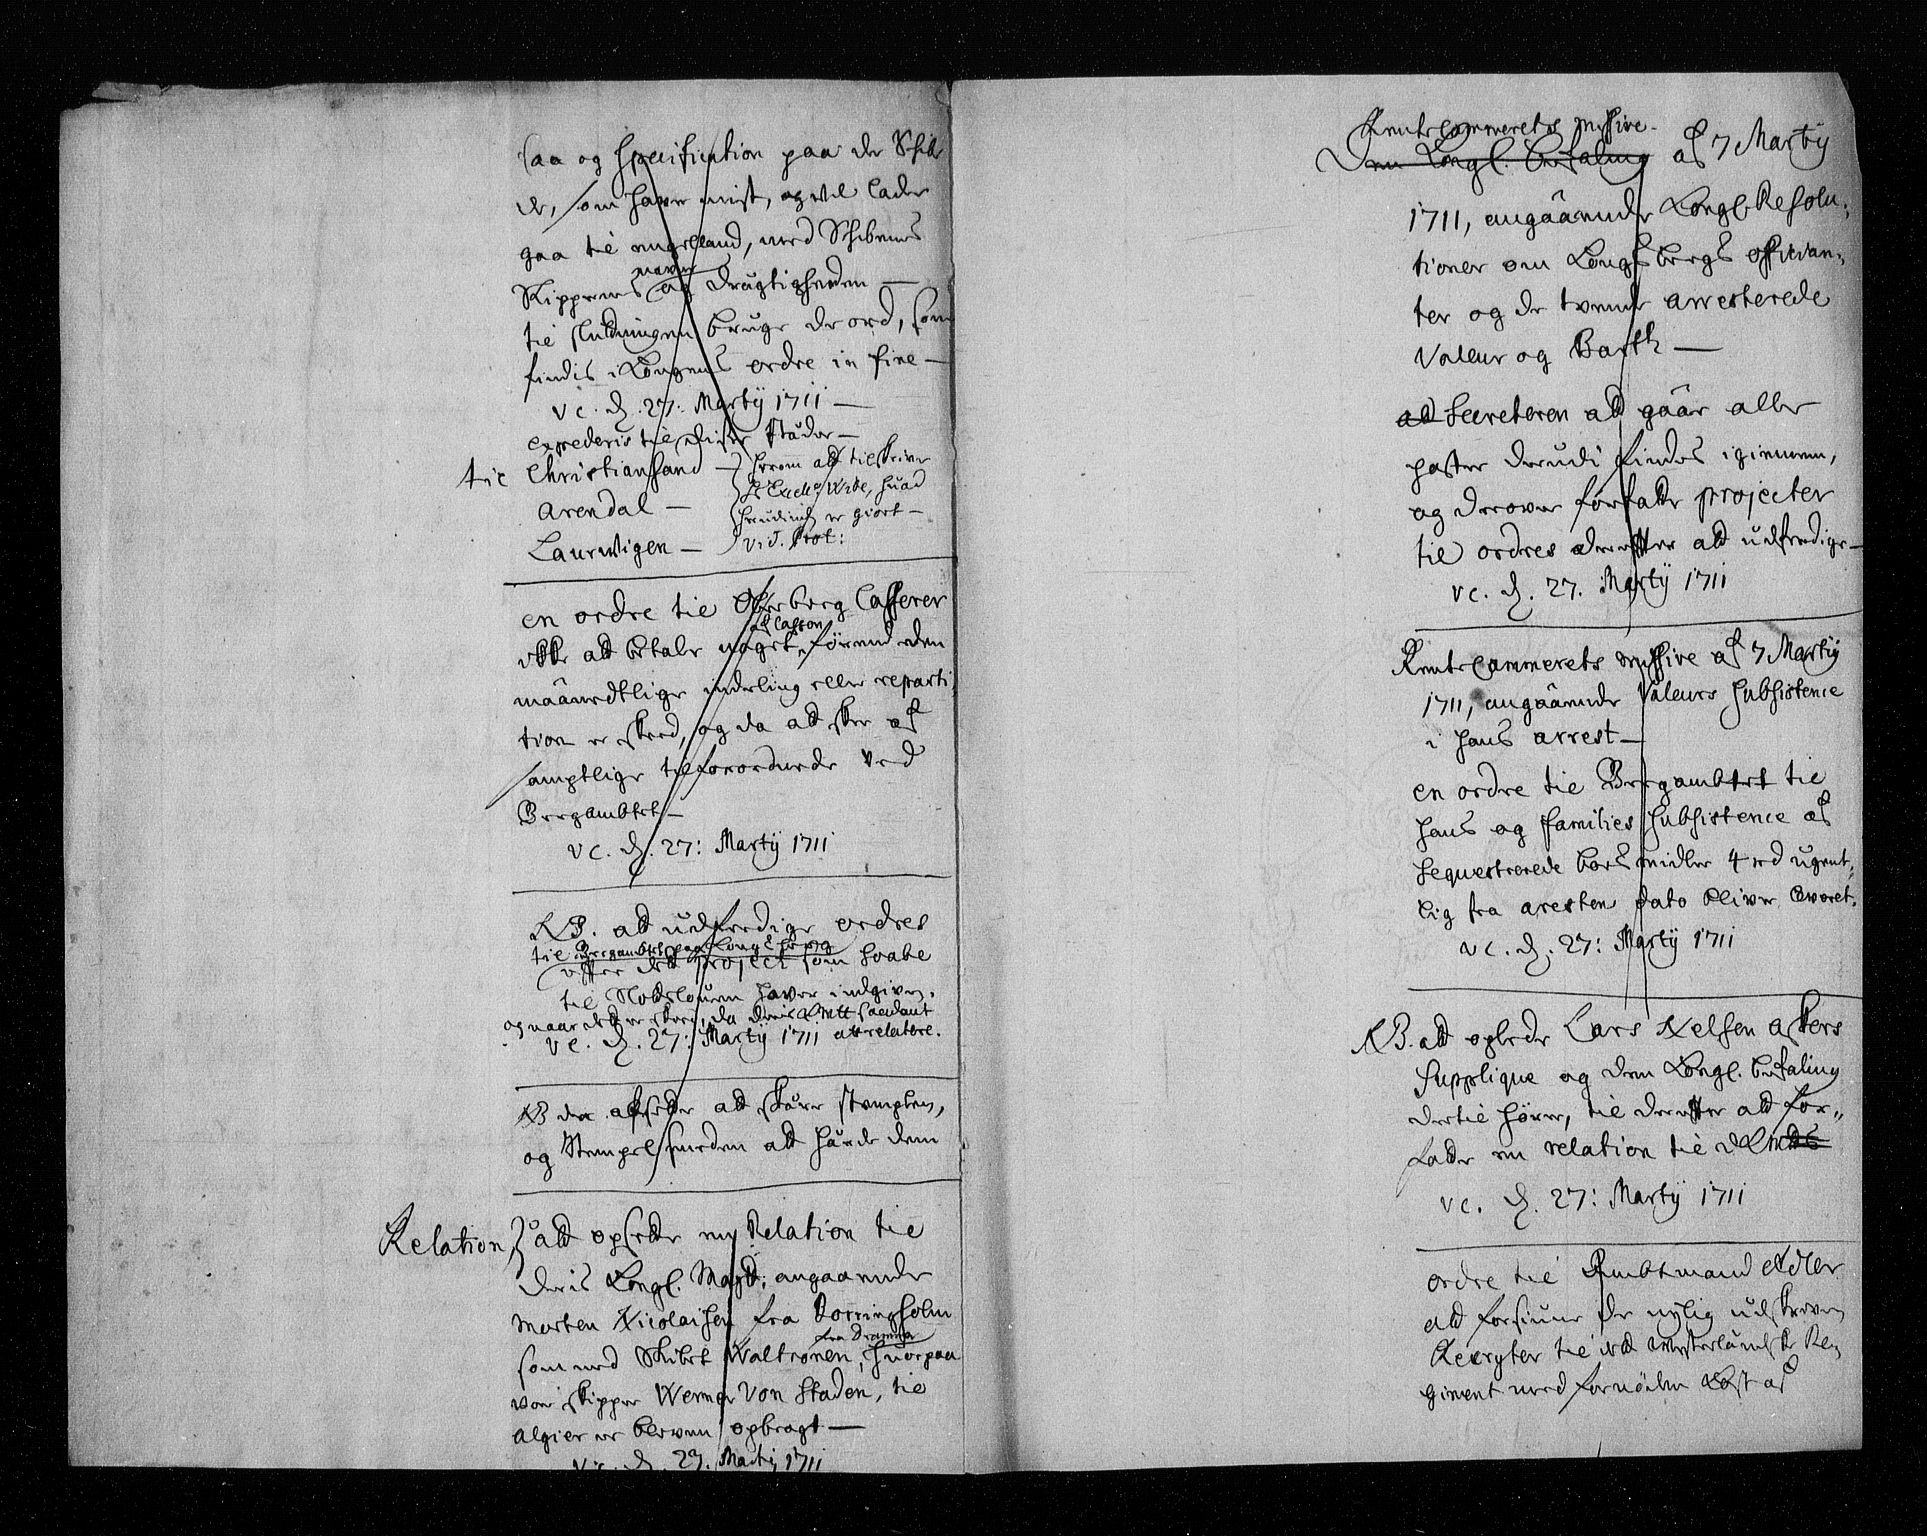 saa og Specification paa de Schibe
de, som haver mist, og vel lader
gaa til engelland, med Schibenes
Skippernes navne og drugtigheden —
til slutningen bruge de ord, som
findis i Kongens ordre in fine —
vc. d. 27: Martij 1711 —
expederis til disse Stæder —
til Christiansand —
Arendal —
Laurwigen —
herom att tilskrive
hr. Wibe, huad
herudinden er giort —
vid. Prot:
en ordre til Oberberg Casserer
ikke att betale noget af Cassen, førend den
maanedtlige inddeling eller reparti
tion er skeed, og da att skee af
samptlige tilforordnede ved
Bergambtet —
vc. d. 27: Martij 1711
NB. att udferdige ordres
til Bergambtet paa Kongsberg
efter det project som Haabe
til Slotslouen haver indgiven,
og naar det er skeed, da saadant
vc. d. 27: Martij 1711 att relatere.
NB att skære stemplen,
og Stempelsmeden att hærde dem
Relation
att opsette en Relation til
Deris Kongl. Mayt: angaaende
Morten Nicolaisen fra Borringholm
som med Skibet Waltronen, fra Drammen, huorpaa
var skipper Werner Von Staden, til
Algier er bleven opbragt —
vc. d. 27. Martij 1711
Rentecammerets missive
Den Kongl. befaling af 7 Martij
1711, angaaende Kongl. Resolu-
tioner om Kongsbergs offician-
ter og de tvende arresterede
Valeur og Barth —
att Secreteren att gaar alle
poster derudi findes igiennem,
og derover forfatte projecter
til ordres derefter att udferdige —
vc. d. 27. Martij 1711
Rentecammerets missive af 7 Martij
1711, angaaende Valeurs Subsistence
i hans arrest —
en ordre til Bergambtet til
hans og families Subsistence af
Sequestrerede boes midler 4 rd ugent-
lig fra arestens dato bliver leveret.
vc. d. 27: Martij 1711
NB. att oplede Lars Nelsen Askers
Supplique og den Kongl. befaling
dertil hører, til derefter att for-
fatte en relation til
vc. d. 27: Martij 1711
ordre til Ambtmand Adler
att forsiune de nylig udskreven
Recryter til det westerlandske Re-
giment med fornöden Kost af